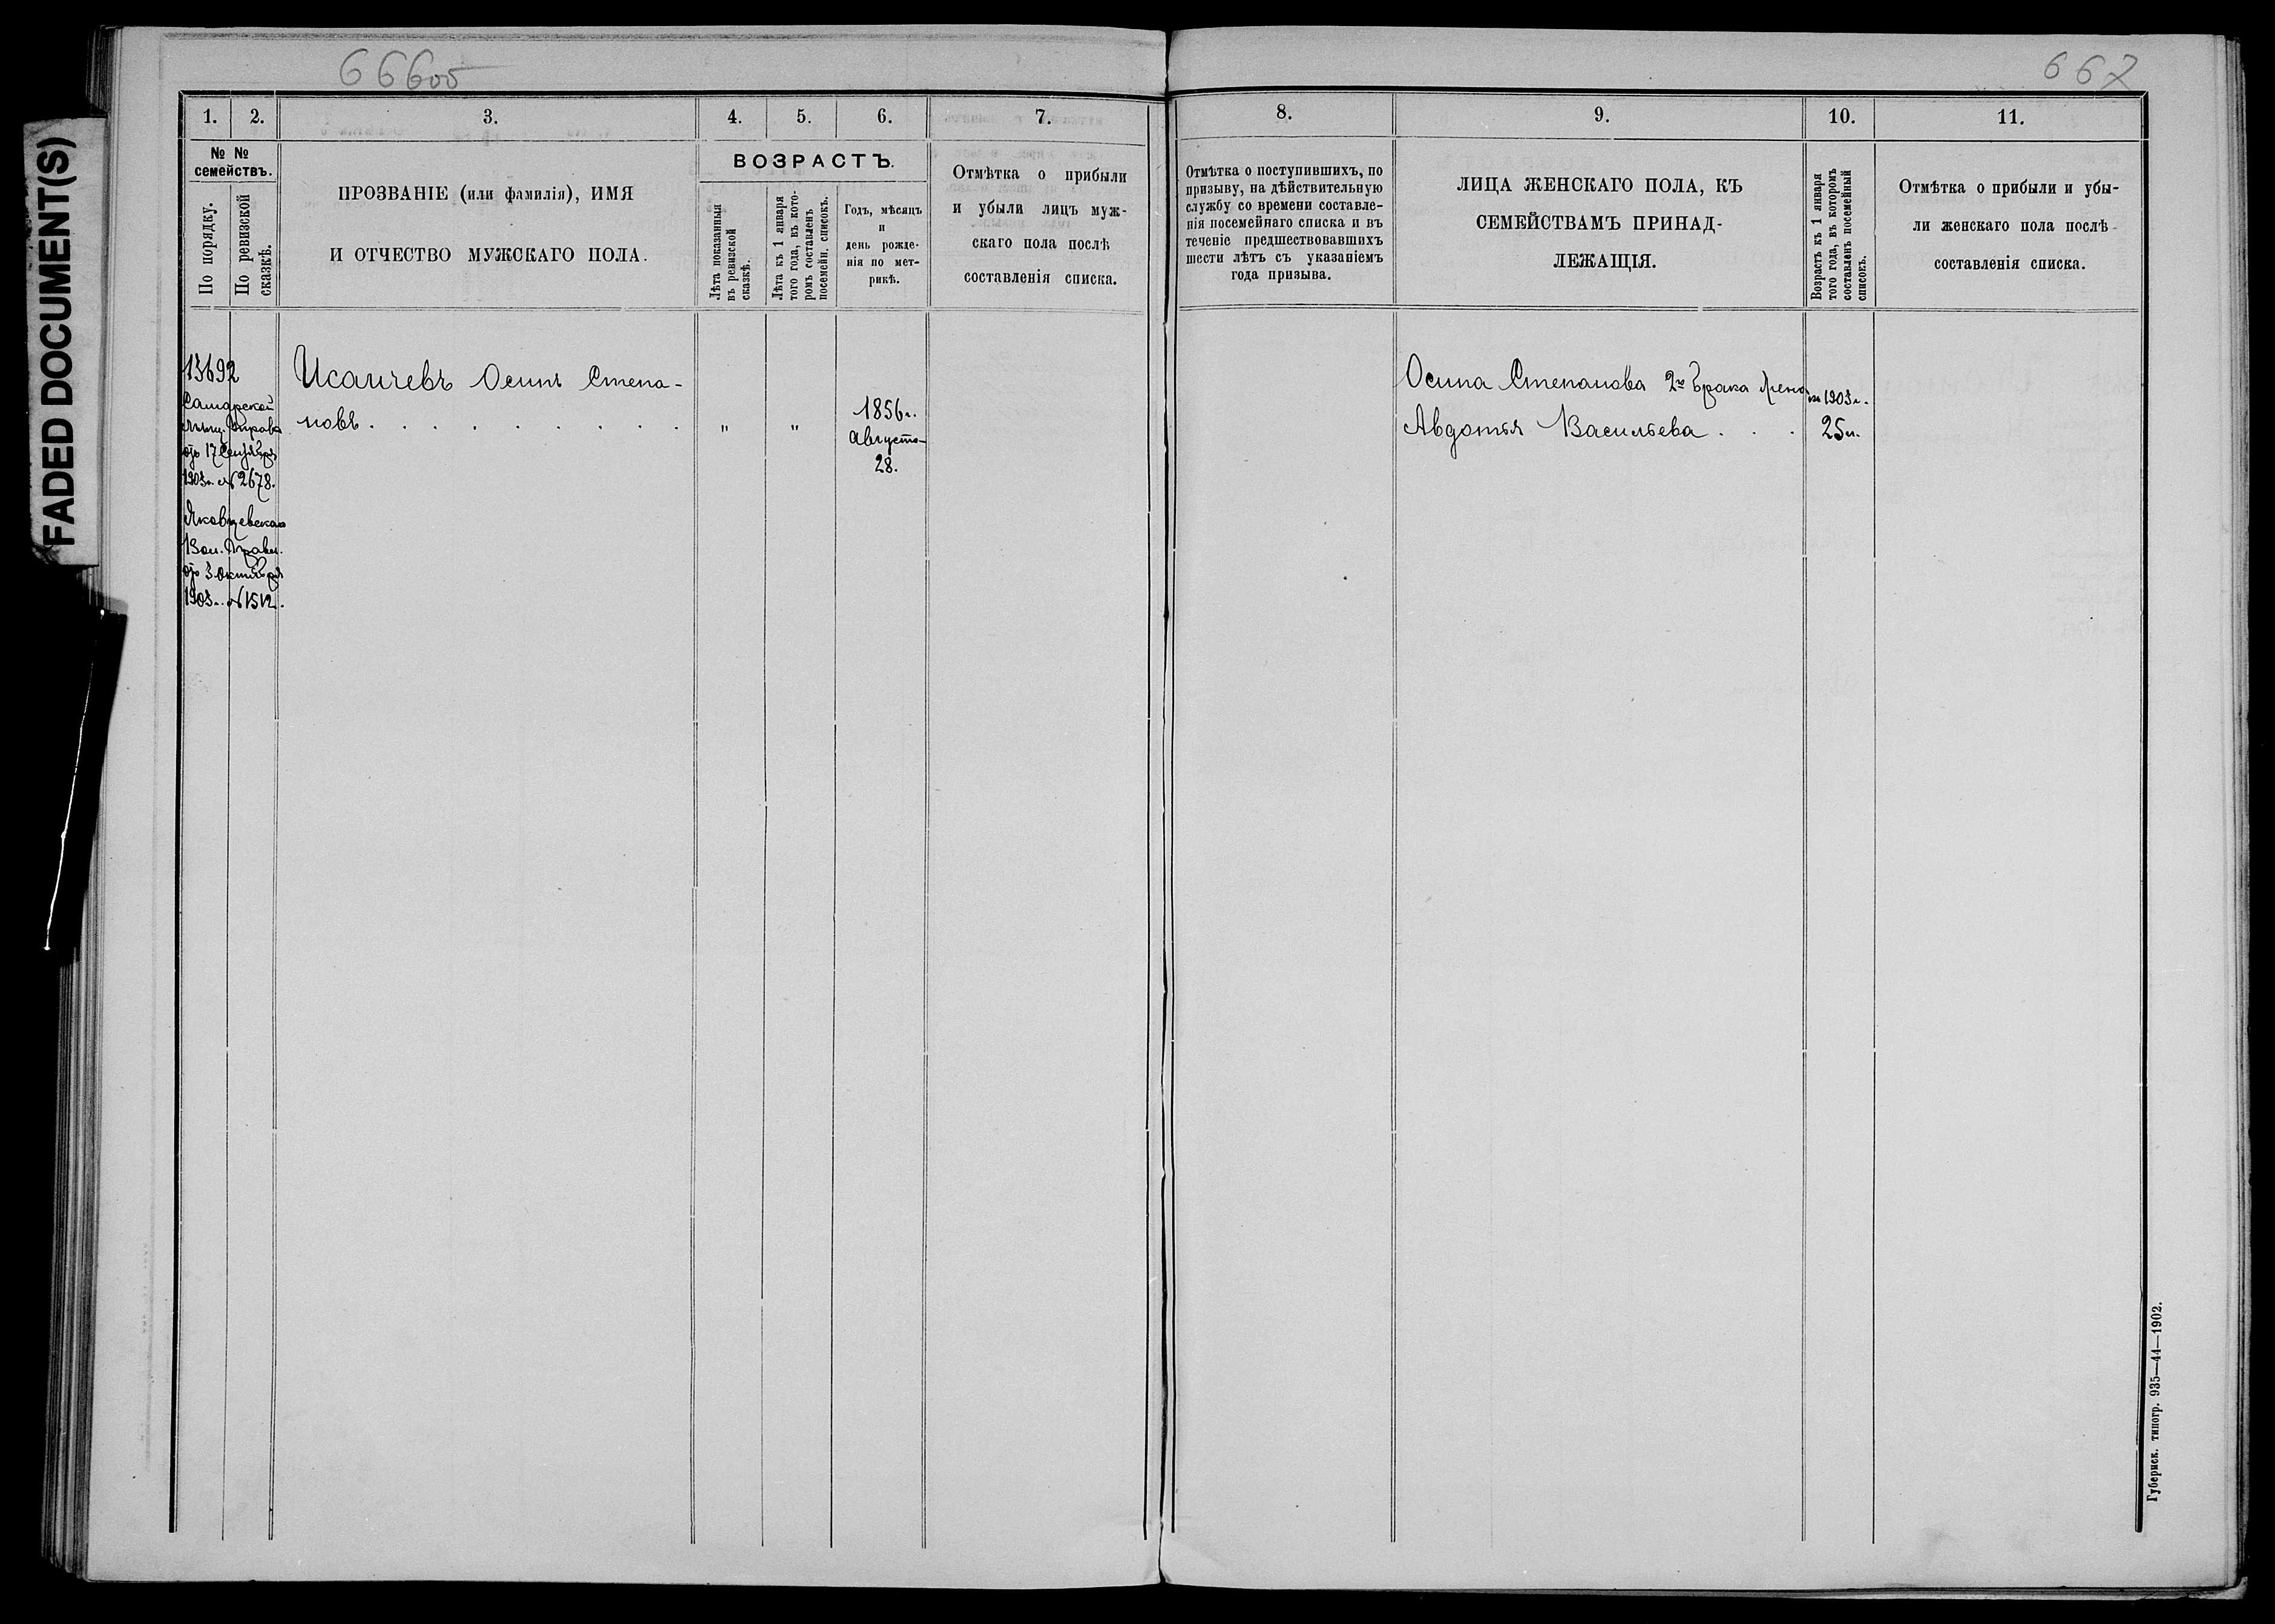 FADED DOCUMENT(S)
666об
667
1. 2. 3. 4. 5. 6. 7.
№ №
семействъ.
По порядку.
По ревизской
сказкѣ.
ПРОЗВАНІЕ (или фамилія), ИМЯ
И ОТЧЕСТВО МУЖСКАГО ПОЛА.
ВОЗРАСТЪ.
Лѣта показанныя
въ ревизской
сказкѣ.
Лѣта къ 1 января
того года, въ кото-
ромъ составленъ
посемейн. списокъ.
Годъ, мѣсяцъ
и
день рожде-
нія по мет-
рикѣ.
Отмѣтка о прибыли
и убыли лицъ муж-
скаго пола послѣ
составленія списка.
13692
Самарской
Мѣщ. Управы
отъ 17 Сентября
1903 г. № 2678.
Вол. Правл.
отъ 3 Октября
1903 г. № 1512.
Исаичевъ Осипъ Степа-
новъ . . . . . . . . .
"
"
1856 г.
Августа
28.
8. 9. 10. 11.
Отмѣтка о поступившихъ, по
призыву, на дѣйствительную
службу со времени составле-
нія посемейнаго списка и въ
теченіе предшествовавшихъ
шести лѣтъ съ указаніемъ
года призыва.
ЛИЦА ЖЕНСКАГО ПОЛА, КЪ
СЕМЕЙСТВАМЪ ПРИНАД-
ЛЕЖАЩІЯ.
Возрастъ къ 1 января
того года, въ которомъ
составленъ посемейный
списокъ.
Отмѣтка о прибыли и убы-
ли женскаго пола послѣ
составленія списка.
Осипа Степанова 2го брака жена
Авдотья Васильева . . .
1903 г.
25 л.
Губернск. типогр. 935—44—1902.